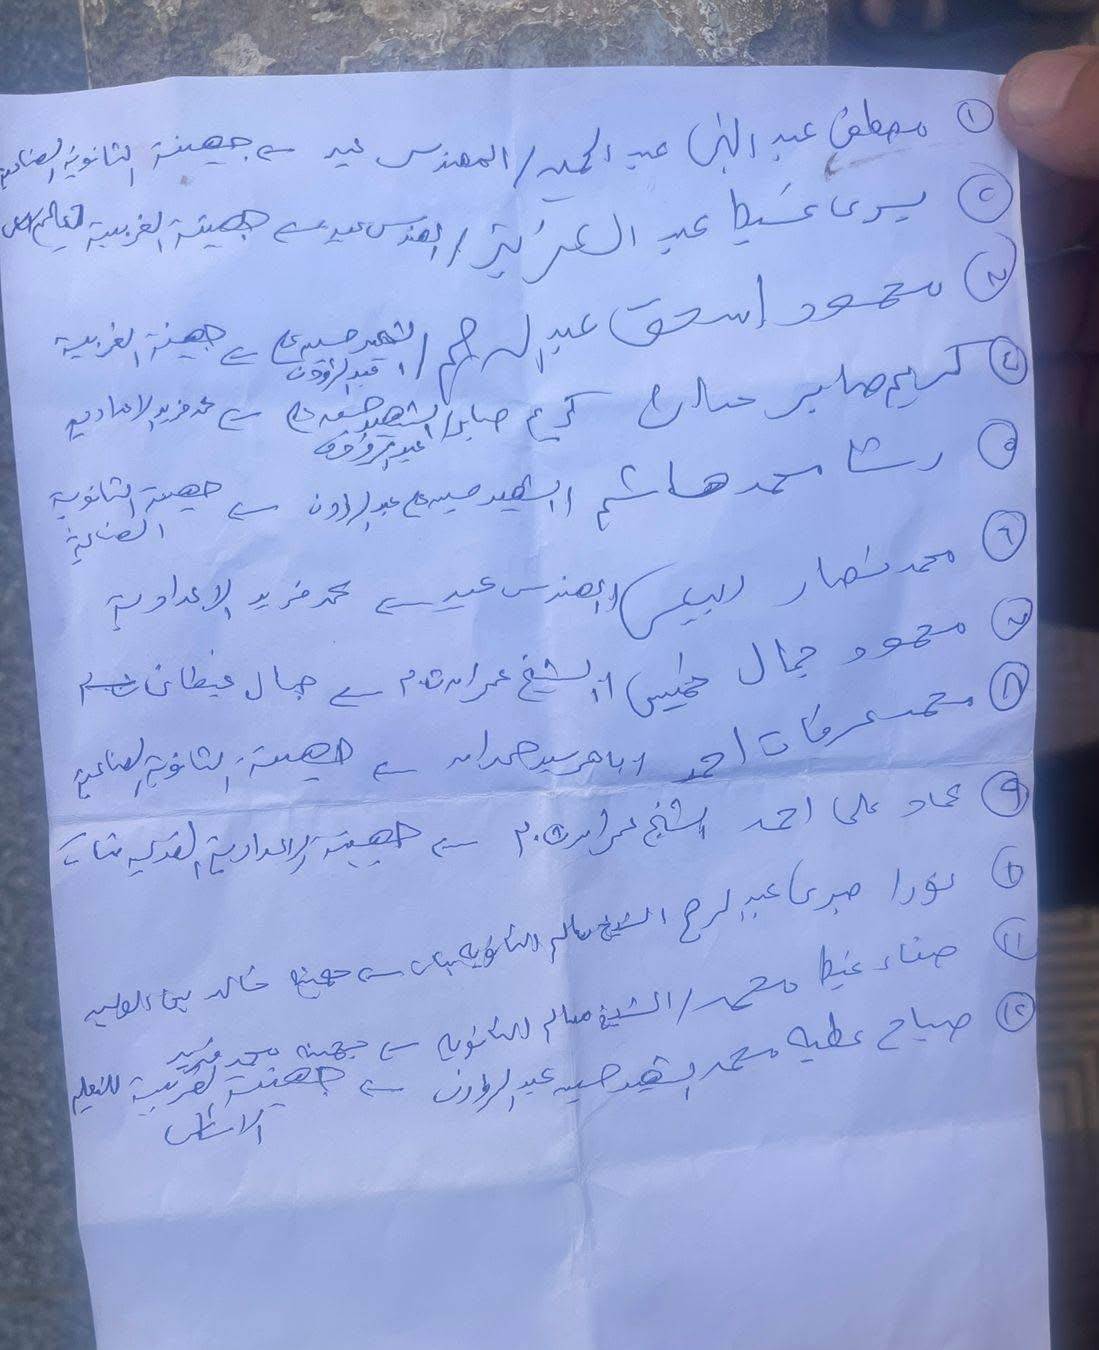 ① مصطفى عبد النبى عبد الحميد / المهندس عيد ← جهينة الثانوية الصناعية
② يسرى غيط عبد العزيز / المهندس عيد ← جهينة الغربية للتعليم الاساسى
③ محمود إسحق عبد الرحيم / الشهيد حسين على ← جهينة الغربية
عبد الرؤوف
④ كريم صابر كريم صابر / الشهيد على ← محمد فريد الاعدادية
عبد الرؤوف
⑤ رشا محمد هاشم / الشهيد حسين على عبد الرؤوف ← جهينة الثانوية
الصناعية
⑥ محمد نصار / المهندس عيد ← محمد فريد الاعدادية
⑦ محمود جمال خميس / الشيخ عمران ← جمال غيطانى
⑧ محمد عرفات احمد / باهر سيد حمدان ← جهينة الثانوية الصناعية
⑨ عماد على احمد الشيخ عمران ← جهينة الاعدادية القديمة بنات
⑩ نورا صبرى عبد الرحيم الشيخ سالم الثانوية بنات ← جهينة خالد بن الوليد
⑪ صفاء غيط محمد / الشيخ سالم الثانوية ← جهينة محمد فريد
⑫ صباح عطيه محمد الشهيد حسين عبد الرؤوف ← جهينة الغربية للتعليم
الاساسى